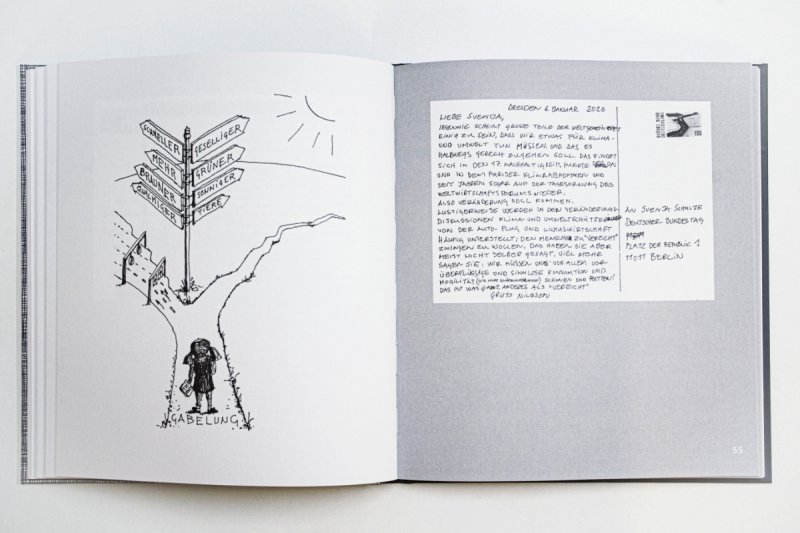 SCHNELLER
MEHR
BRAUNER
QUALMIGER
GESELLIGER
GRÜNER
SONNIGER
TIERE
GABELUNG
DRESDEN 6 JANUAR 2020
LIEBE SVENJA,
IRGENDWIE SCHEINT GROSSE TEILE DER WELTGEMEINSCHAFT
EINIG ZU SEIN, DASS WIR ETWAS FÜR KLIMA-
UND UMWELT TUN MÜSSEN UND DAS ES
HALBWEGS GERECHT ZUGEHEN SOLL. DAS FINDET
SICH IN DEN 17. NACHHALTIGKEITS
UND IN DEM PARISER KLIMAABKOMMEN UND
SEIT JAHREN SOGAR AUF DER TAGESORDNUNG DES
WELTWIRTSCHAFTSFORUMS WIEDER.
ALSO VERÄNDERUNG SOLL KOMMEN.
LUSTIGERWEISE WERDEN IN DEN VERÄNDERUNGS-
DISKUSSIONEN KLIMA UND UMWELTSCHÜTZER
VON DER AUTO- FLUG UND LUXUSWIRTSCHAFT
HÄUFIG UNTERSTELLT, DEN MENSCHEN ZU "VERZICHT"
ZWINGEN ZU WOLLEN. DAS HABEN SIE ABER
MEIST NICHT SELBER GESAGT, VIEL MEHR
SAGEN SIE: WIR MÜSSEN UNS VOR ALLEM VOR
ÜBERFLÜSSIGE UND SINNLOSE KONSUMTION UND
MOBILITÄT SCHONEN UND RETTEN!
DAS IST WAS GANZ ANDERES ALS "VERZICHT"
GRUSS NILSSON
155
AN SVENJA SCHULZE
DEUTSCHER BUNDESTAG
PLATZ DER REPUBLIK 1
11011 BERLIN
55